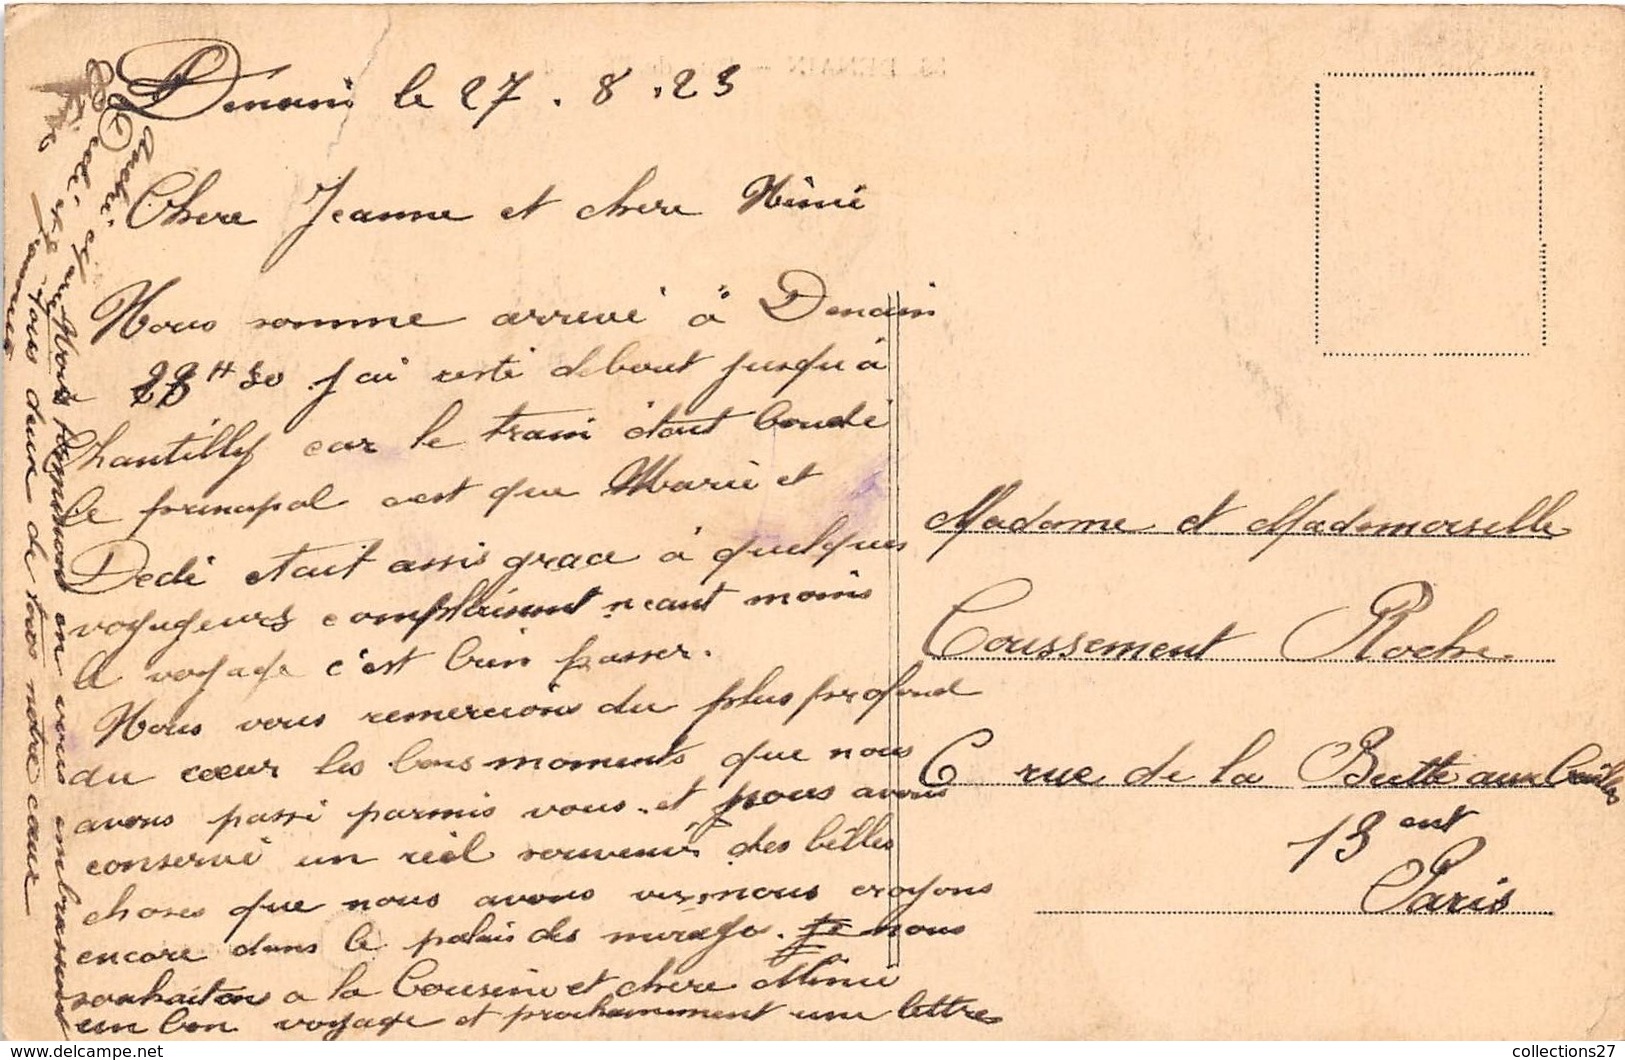 Denain le 27.8.23
Chere Jeanne et chere Mimi
Nous somme arrivé à Denain
30 J'ai resté debout jusqu'à
Chantilly car le train étaut bondé
le principal cest que Marie et
Dedé etait assis grace à quelques
voyageurs complaisent neant moins
le voyage c'est bien passer.
Nous vous remercions du plus profond
du cœur les bons moments que nous
avons passé parmis vous. et nous avons
conservé un réél souvenir des belles
choses que nous avons vu, nous croyons
encore dans le palais des mirage. Je nous
souhaitons a la Cousine et chere Mimi
un bon voyage et prochainement une lettre
Nous terminons en vous embrassant
tous deux de tous notre cœur
André
Madame et Mademoiselle
Coussement Roche
6 rue de la Butte aux Cailles
13 ent
Paris
DENAIN
collections27